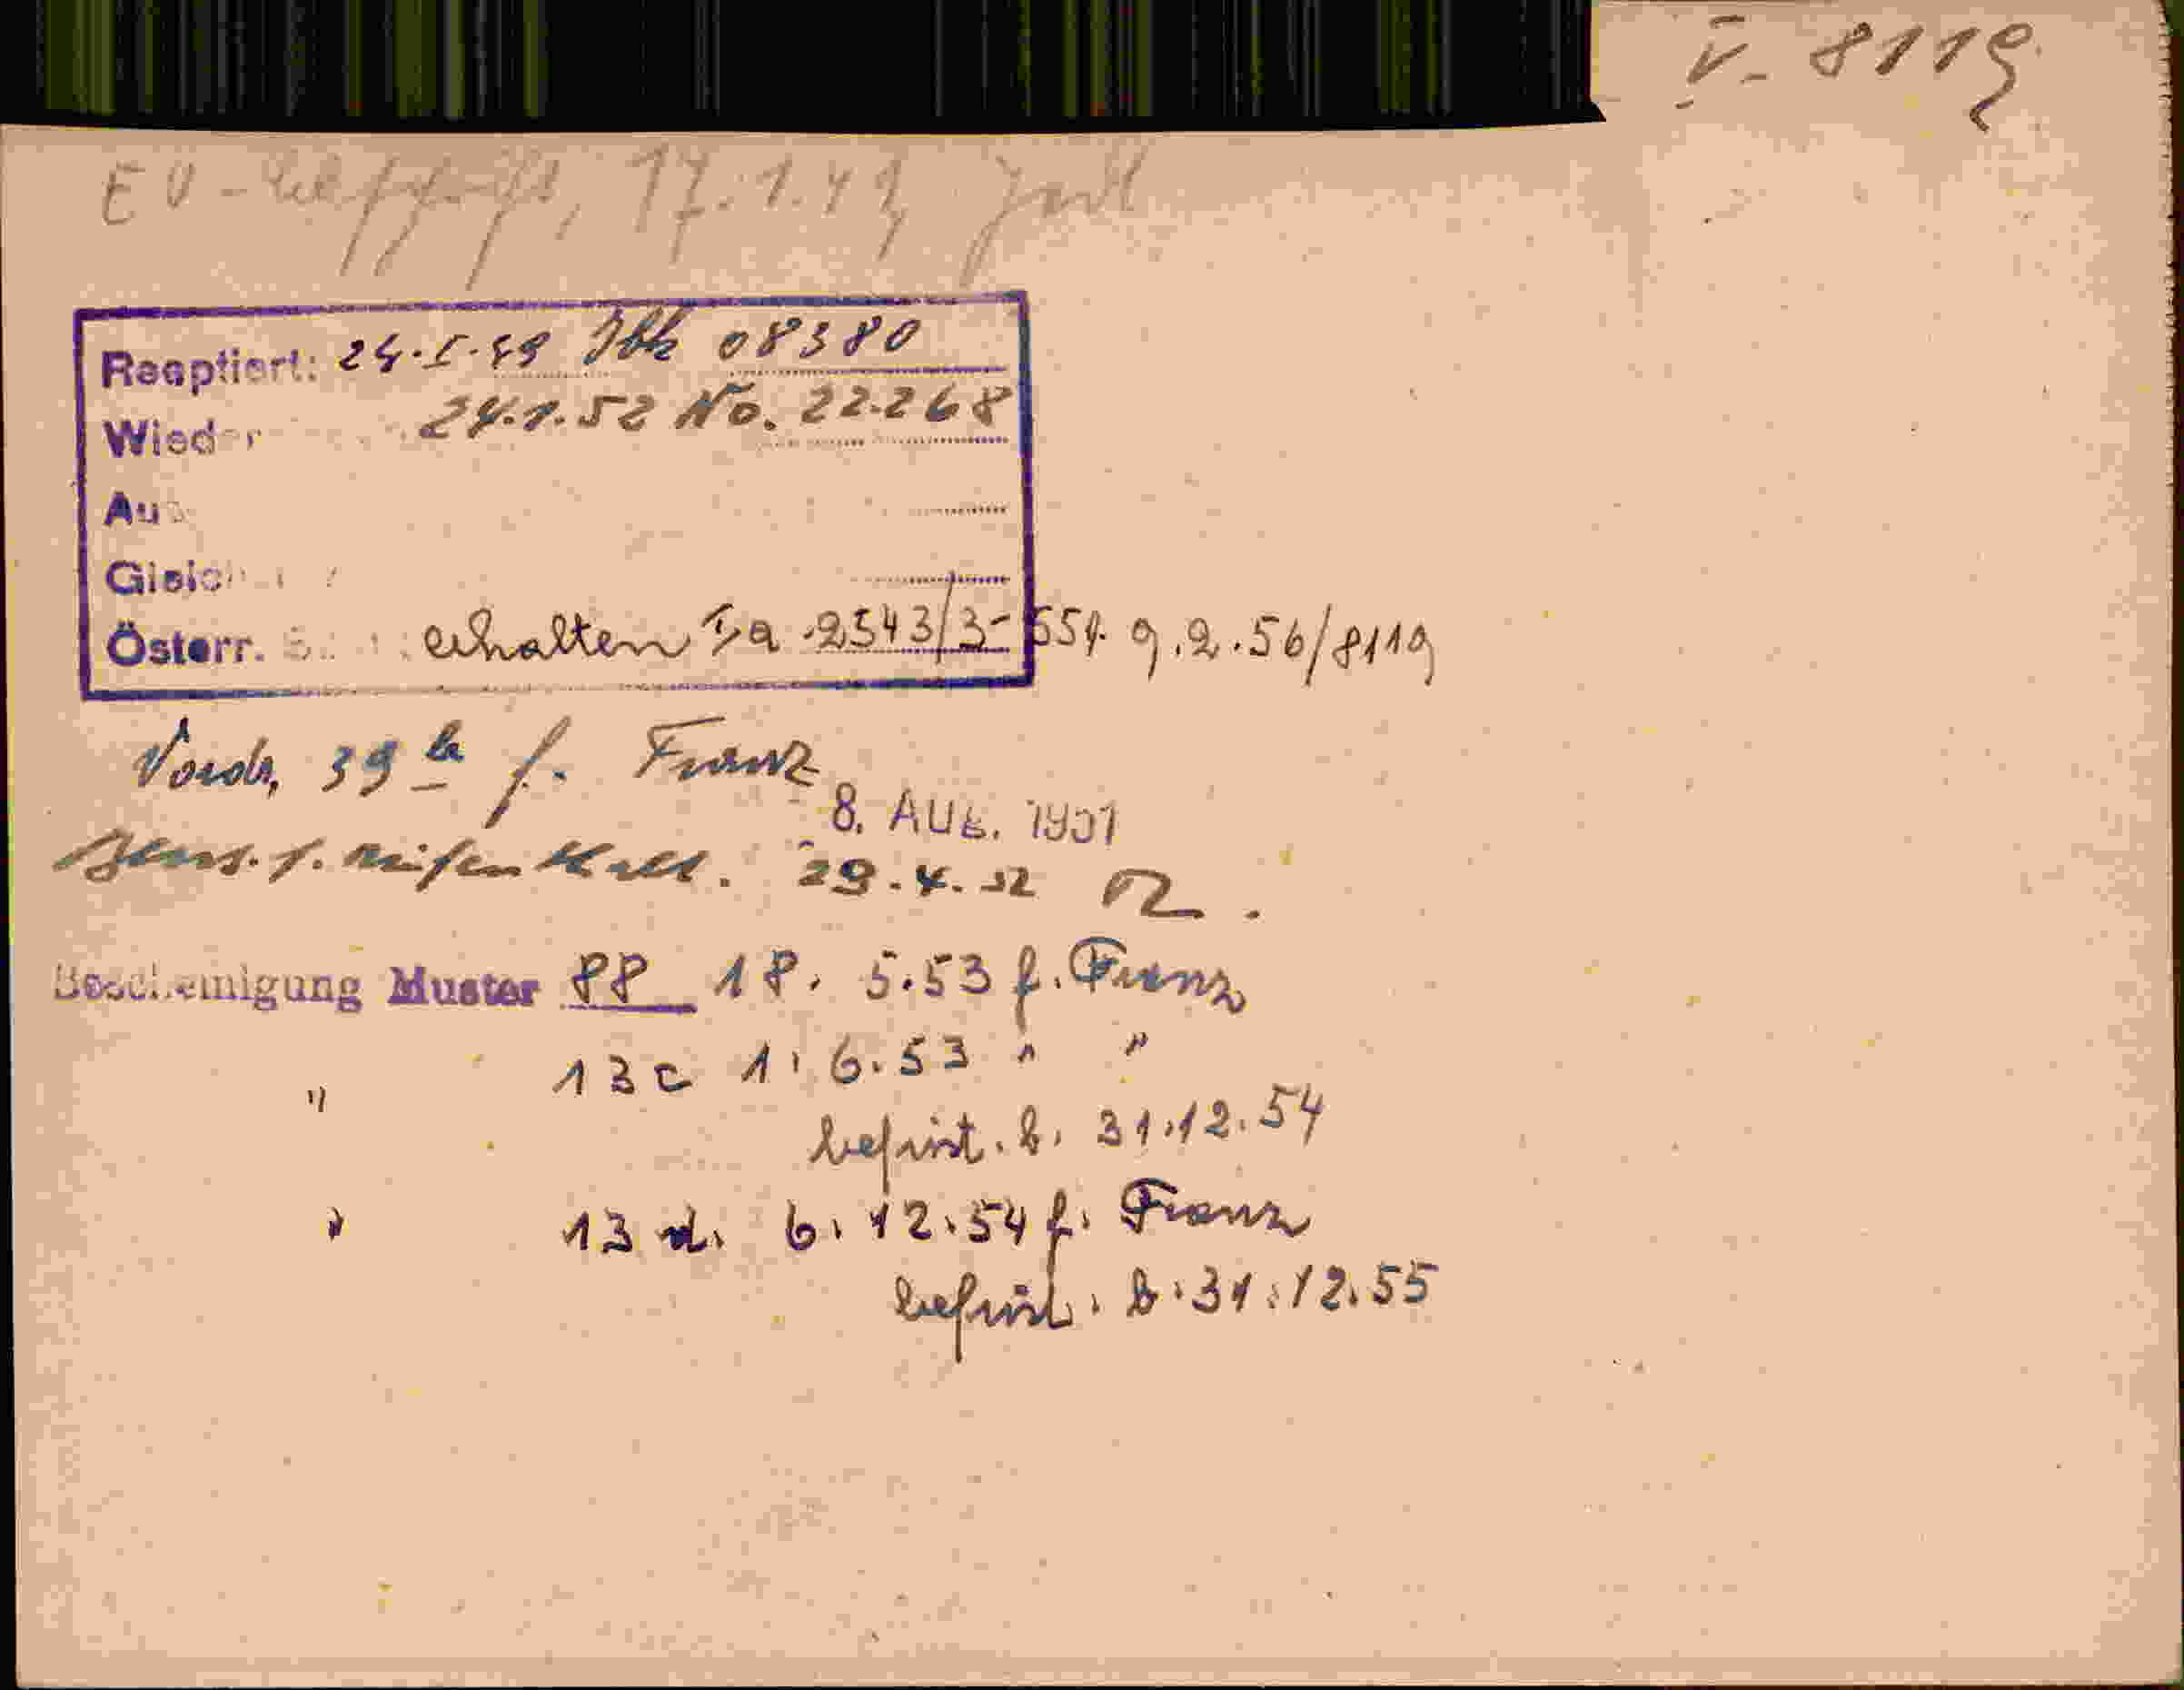 V. 8119
EV- 17.1.49
Reaptiert: 24.I.49 Ibk 08380
Wieder 24.1.52 No. 22.268
Aus
Gleich
Österr. erhalten Ia 2543/3-55f. 9.2.56/8119
Vordr. 39 b f. Franz
8. AUG. 1951
29.4.52
Bescheinigung Muster 88 18. 5.53 f. Franz
" 13c 1. 6.53 " "
befrist. b. 31.12.54
" 13 d. 6. 12.54 f. Franz
befrist. b. 31.12.55